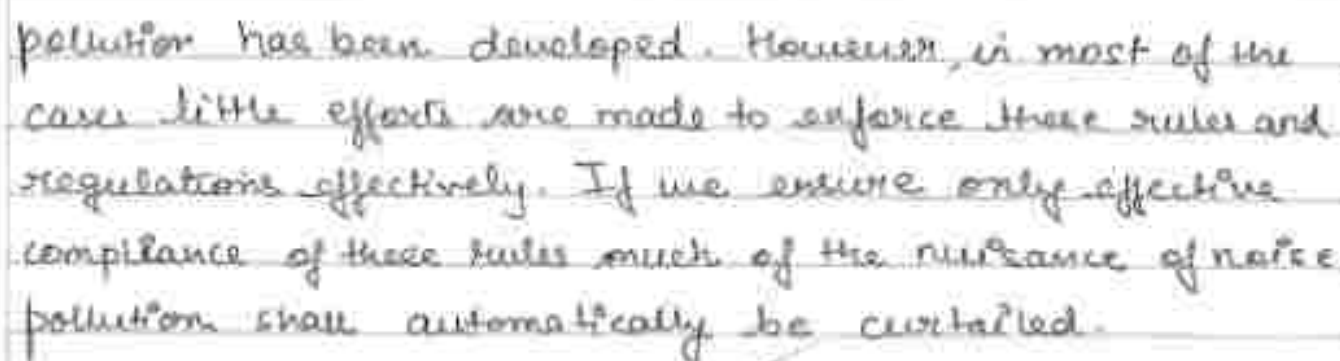 pollution has been developed. However, in most of the
cases little efforts are made to enforce these rules and
regulations effectively. If we ensure only effective
compliance of these rules much of the nuisance of noise
pollution shall automatically be curtailed.